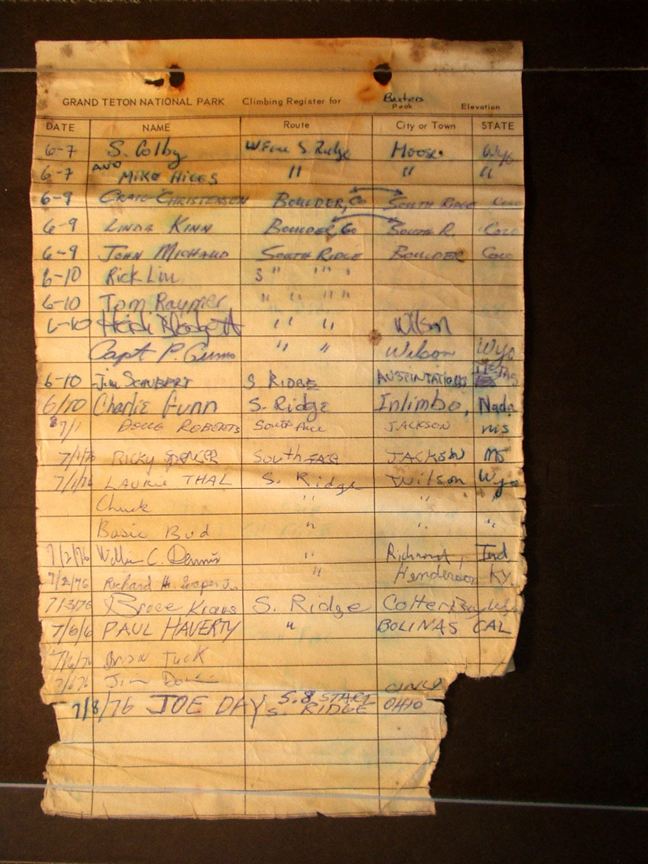 GRAND TETON NATIONAL PARK Climbing Register for Baxters Peak Elevation
DATE NAME Route City or Town STATE
6-7 S. Colby W Face S Ridge Moose Wyo
6-7 AND MIKE HILES " " "
6-9 CRAIG CHRISTENSEN BOULDER, CO SOUTH RIDGE COLO
6-9 LINDA KINN BOULDER CO SOUTH R. COLO
6-9 JOHN MICHAUD SOUTH RIDGE BOULDER COLO
6-10 RICK LIU S " " "
6-10 Tom Raymer " " " "
6-10 Heidi " " Wilson
Capt P. " " Wilson Wyo
6-10 Jim SCHUBERT S RIDGE AUSTIN
6/10 Charlie Gunn S. Ridge In limbo, Nada
7/1 DOUG ROBERTS South face JACKSON MS
7/1/76 RICKY SPENCER South face JACKSON MS
7/1/76 LAURIE THAL S. Ridge Wilson Wyo
Chuck " " "
Basic Bud " " "
7/2/76 C. Dennis " Richmond, Ind
7/2/76 Richard H. " Henderson Ky.
7/3/76 Bruce S. Ridge Colter Bay
7/6/6 PAUL HAVERTY " BOLINAS CAL
7/6/76 Brian Tuck
Jim
7/8/76 JOE DAY S.8 START S. RIDGE CINCO OHIO